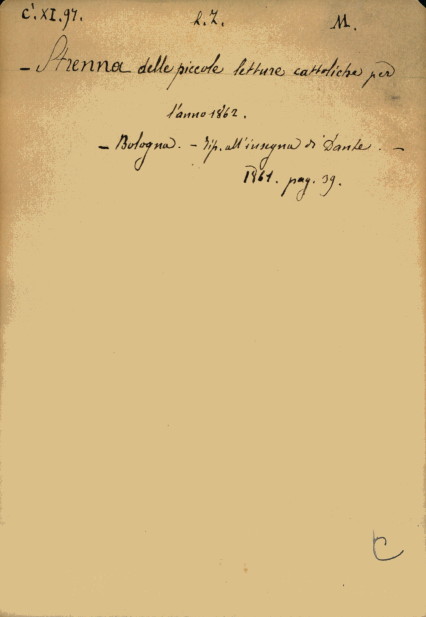 C. XI. 97. L. Z. M.
– Strenna delle piccole letture cattoliche per
l'anno 1862.
– Bologna. – Tip. all'insegna di Dante. –
1861. pag. 39.
C